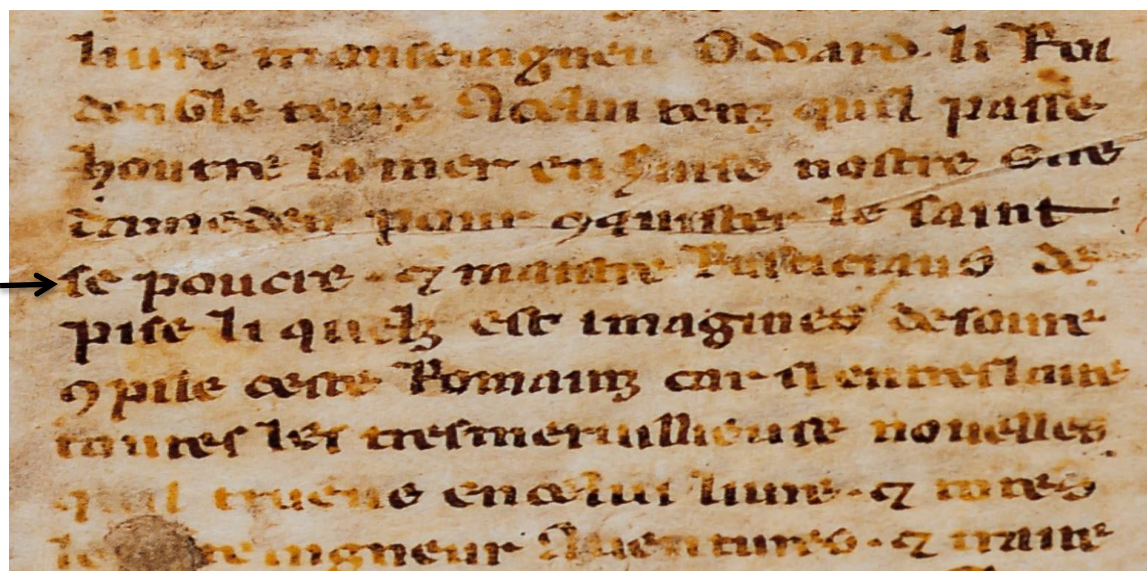 liure monseingneu Odoard li Roi
dengle terre A celui tenz quil passe
houtre la mer en seruise nostre Sire
damedeu pour 9quister le saint
se poucre · ⁊ maistre Rusticiaus de
pise li quelz est imagines desoure
9pile ceste Romainz car il en treslaite
toutes les tresmeruillieuse nouelles
quil trueue en celui liure · ⁊ totes
le ingneur Auentures · ⁊ traite